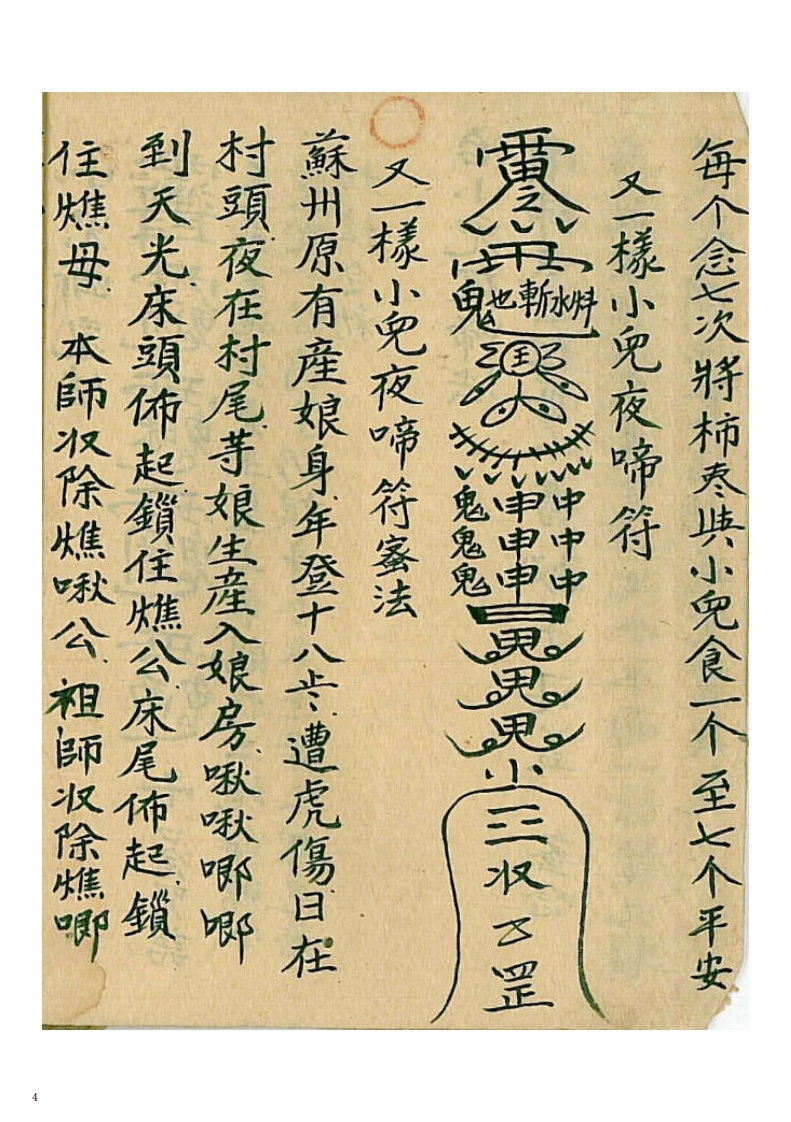 每个念七次将柿枣與小兒食一个至七个平安
又一樣小兒夜啼符
鬼也斬水
鬼鬼鬼
申申申
中中中
小三收
罡
又一樣小兒夜啼符蜜法
蘇州原有産娘身年登十八步遭虎傷日在
村頭夜在村尾等娘生産入娘房啾啾唧唧
到天光床頭佈起鎖住燋公床尾佈起鎖
住燋母本師収除燋啾公祖師収除燋唧
4